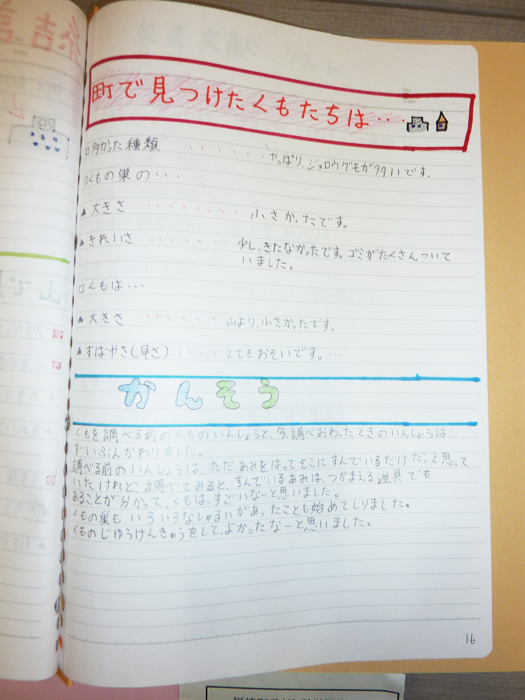 町で見つけたくもたちは…
□多かった種類 ・・・・・・ やっぱり、ジョロウグモが多いです。
□くもの巣の…
▲大きさ ・・・・・・・ 小さかったです。
▲きれいさ ・・・・・・・ 少し、きたなかったです。ゴミがたくさんついて
いました。
□くもは…
▲大きさ ・・・・・・ 山より、小さかったです。
▲すばやさ(早さ) ・・・・ とてもおそいです。…
かんそう
くもを調べる前のくものいんしょうと、今、調べおわったときのいんしょうは、
ずいぶんかわりました。
調べる前のいんしょうは、ただ、あみをはってそこにすんでいるだけだ。と思って
いたけれど、調べてみると、すんでいるあみは、つかまえる道具でも
あることが分かって、くもは、すごいなーと思いました。
くもの巣も、いろいろなしゅるいがあったことも始めてしりました。
くものじゆうけんきゅうをして、よかったなーと思いました。
16